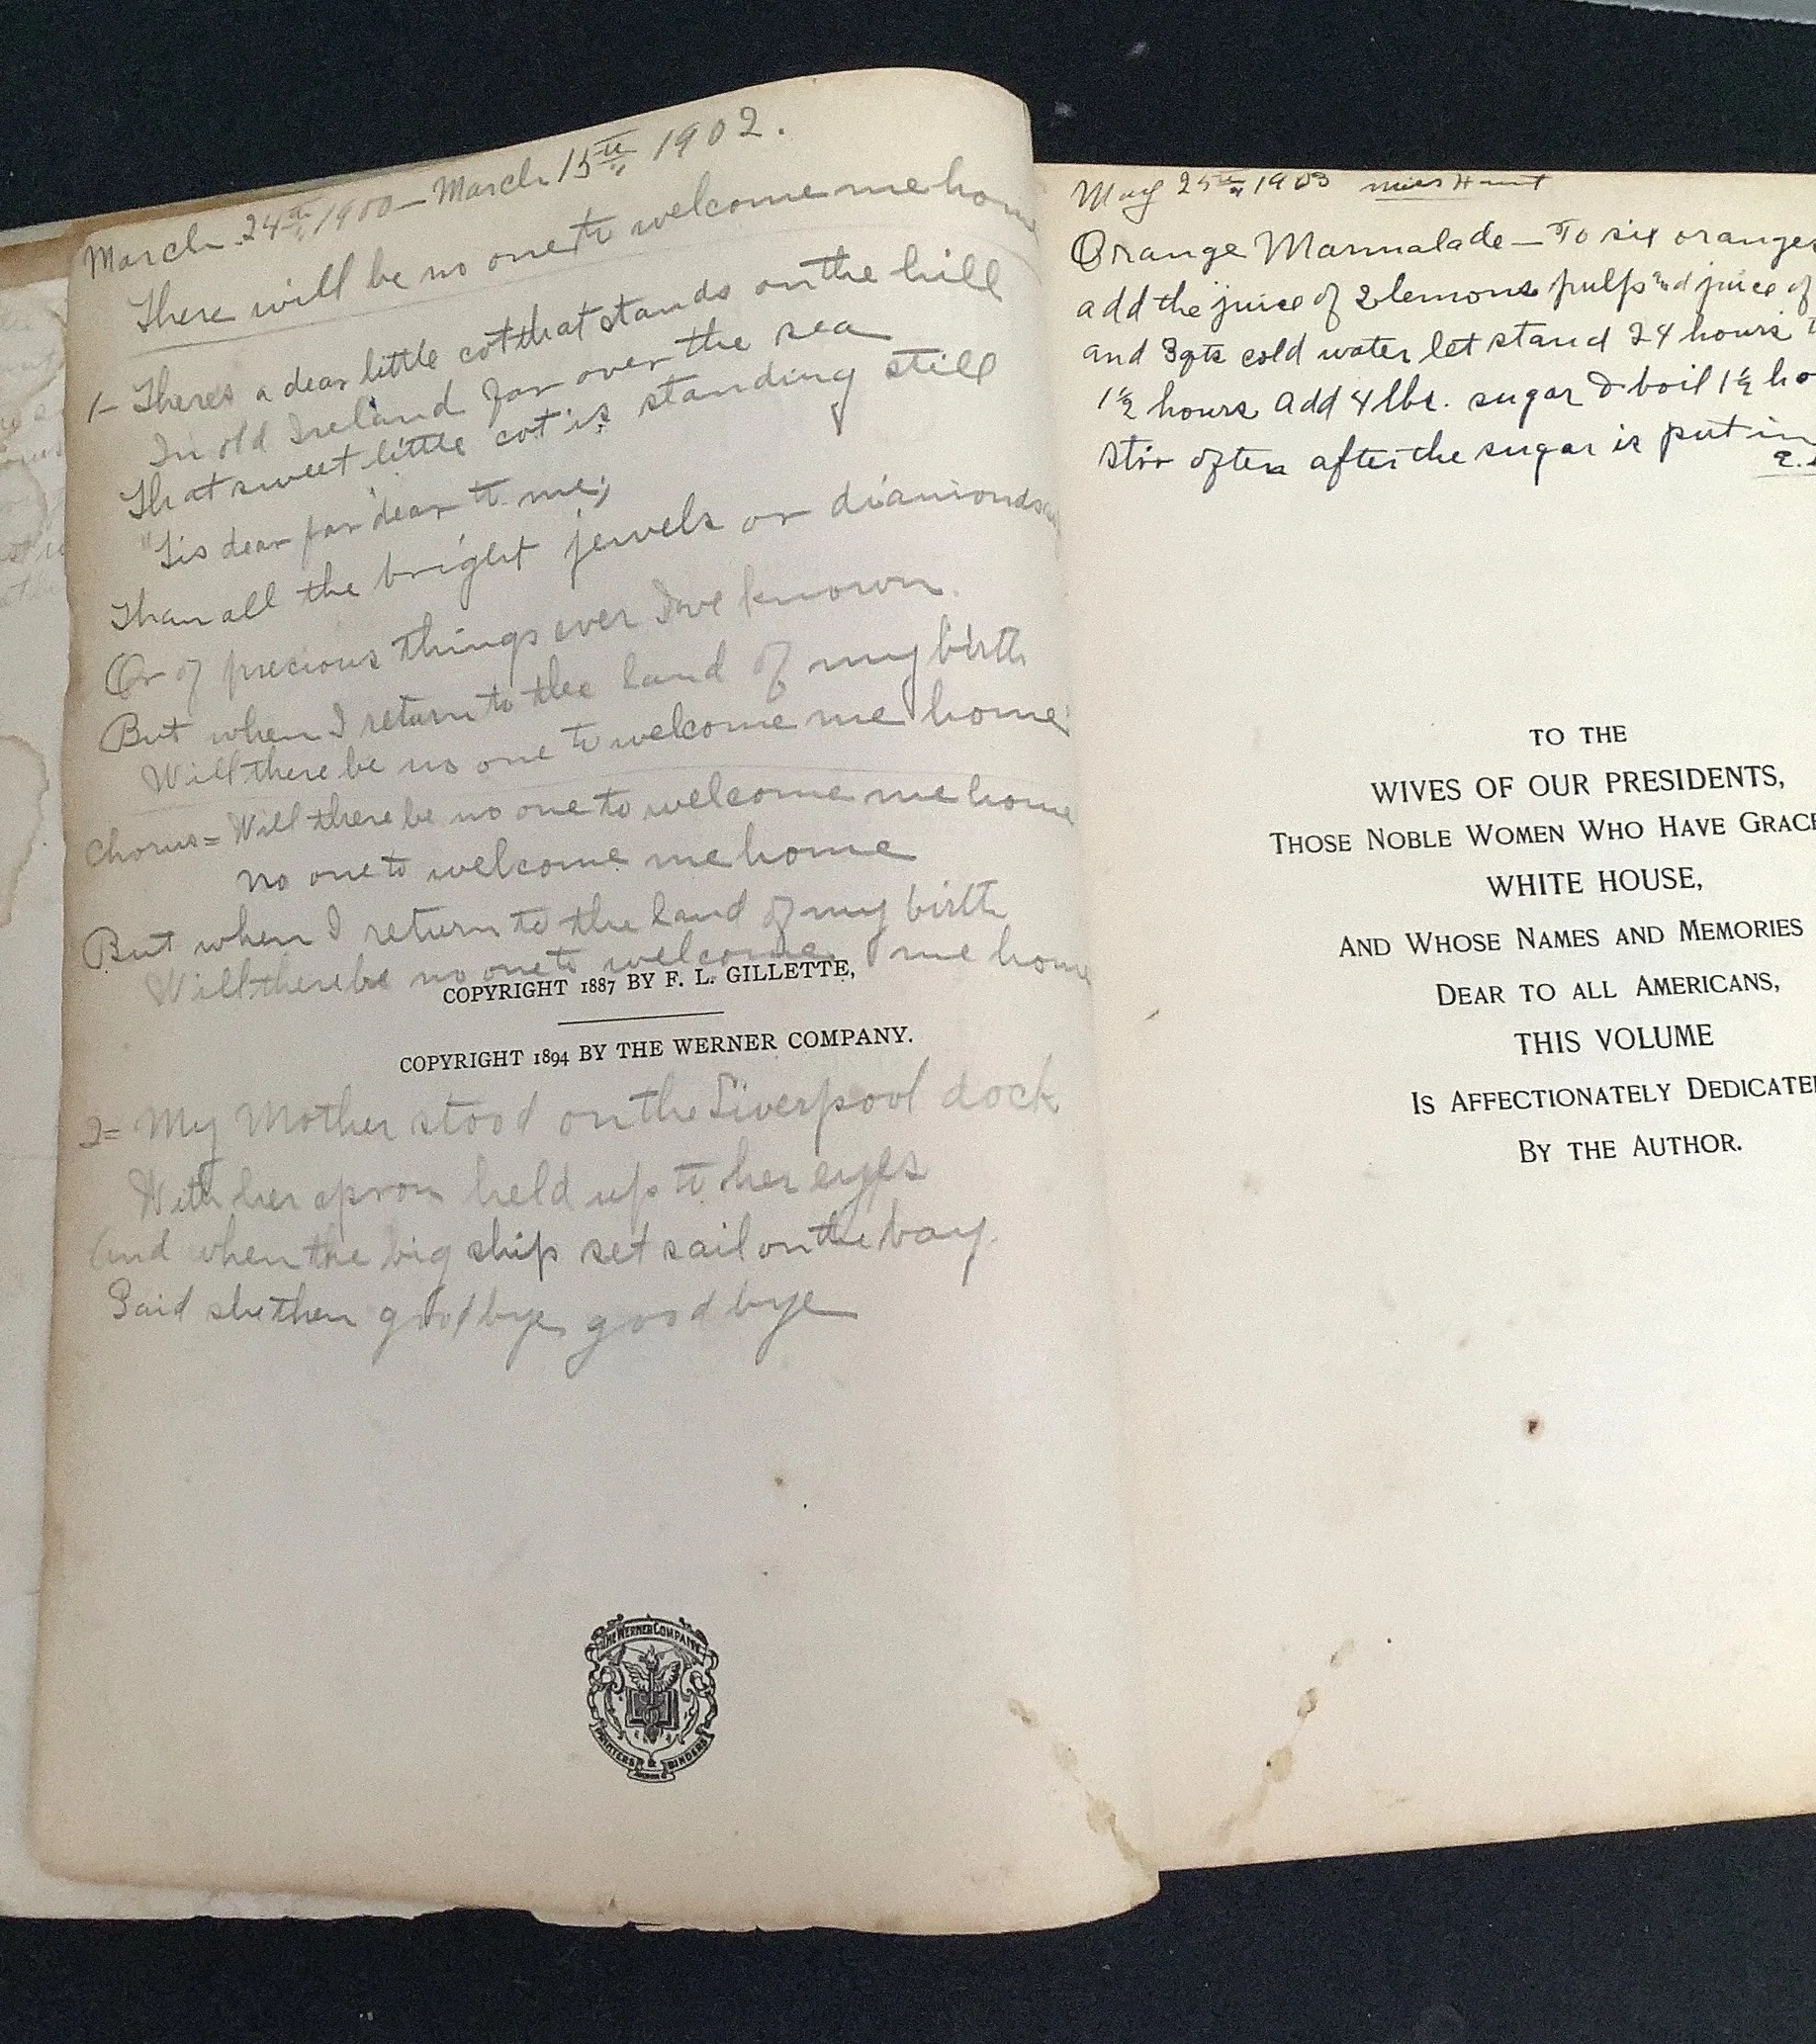 March 24th 1900 — March 15th 1902.
There will be no one to welcome me home
1- There's a dear little cot that stands on the hill
In old Ireland far over the sea
That sweet little cot is standing still
'Tis dear far dear to me;
Than all the bright jewels or diamonds
Or of precious things ever I've known.
But when I return to the land of my birth
Will there be no one to welcome me home
Chorus = Will there be no one to welcome me home
No one to welcome me home
But when I return to the land of my birth
Will there be no one to welcome me home
COPYRIGHT 1887 BY F. L. GILLETTE,
COPYRIGHT 1894 BY THE WERNER COMPANY.
2= My Mother stood on the Liverpool dock
With her apron held up to her eyes
And when the big ship set sail on the bay.
Said she then goodbye goodbye
THE WERNER COMPANY
PRINTERS & BINDERS
May 25th 1903 Hunt
Orange Marmalade — To six oranges
add the juice of 2 lemons pulp and juice of
and 3 qts cold water let stand 24 hours
1½ hours add 4 lbs. sugar & boil 1½ ho
stir often after the sugar is put in
TO THE
WIVES OF OUR PRESIDENTS,
THOSE NOBLE WOMEN WHO HAVE GRAC
WHITE HOUSE,
AND WHOSE NAMES AND MEMORIES
DEAR TO ALL AMERICANS,
THIS VOLUME
IS AFFECTIONATELY DEDICATE
BY THE AUTHOR.